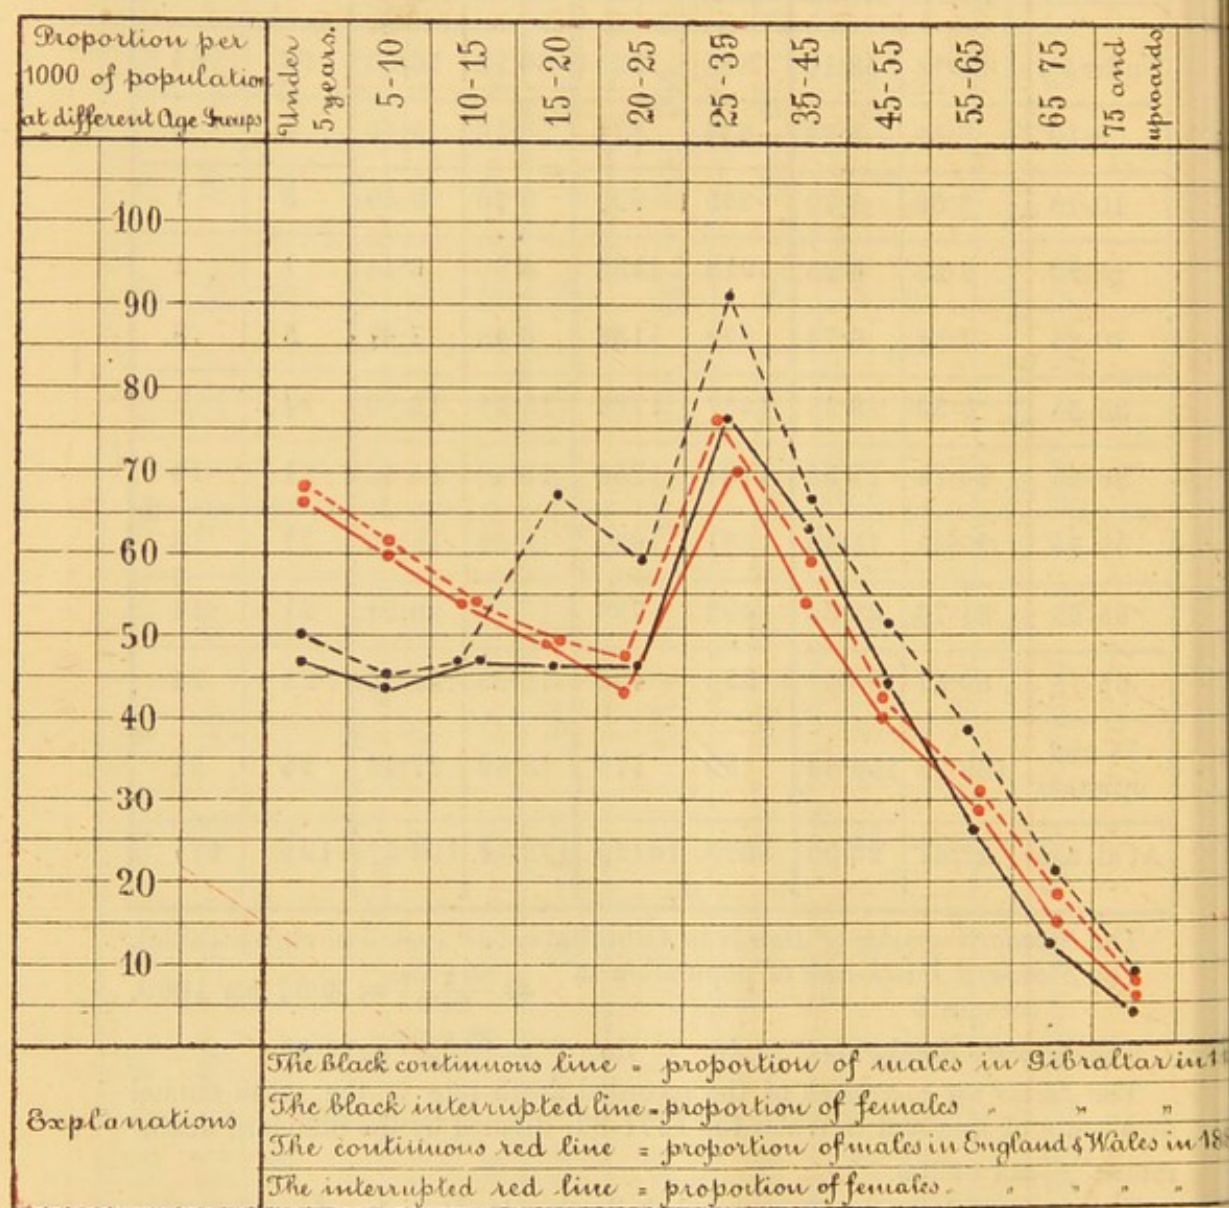 Proportion per
1000 of population
at different Age Groups
Under
5 years.
5-10
10-15
15-20
20-25
25-35
35-45
45-55
55-65
65 75
75 and
upwards
100
90
80
70
60
50
40
30
20
10
Explanations
The black continuous line = proportion of males in Gibraltar in 1
The black interrupted line = proportion of females " " "
The continuous red line = proportion of males in England & Wales in 18
The interrupted red line = proportion of females. " " " "